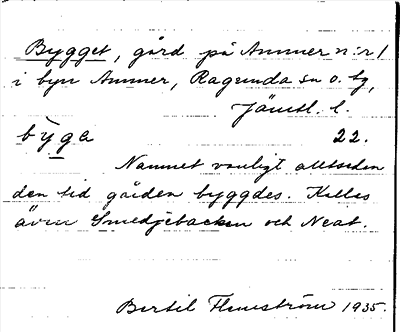 Bygget, gård på Ammer n:r 1
i byn Ammer, Ragunda sn o. tg,
Jämtl. l.
byga 22.
Namnet vanligt alltsedan
den tid gården byggdes. Kallas
även Smedjebacken och Neat.
Bertil Flemström 1935.